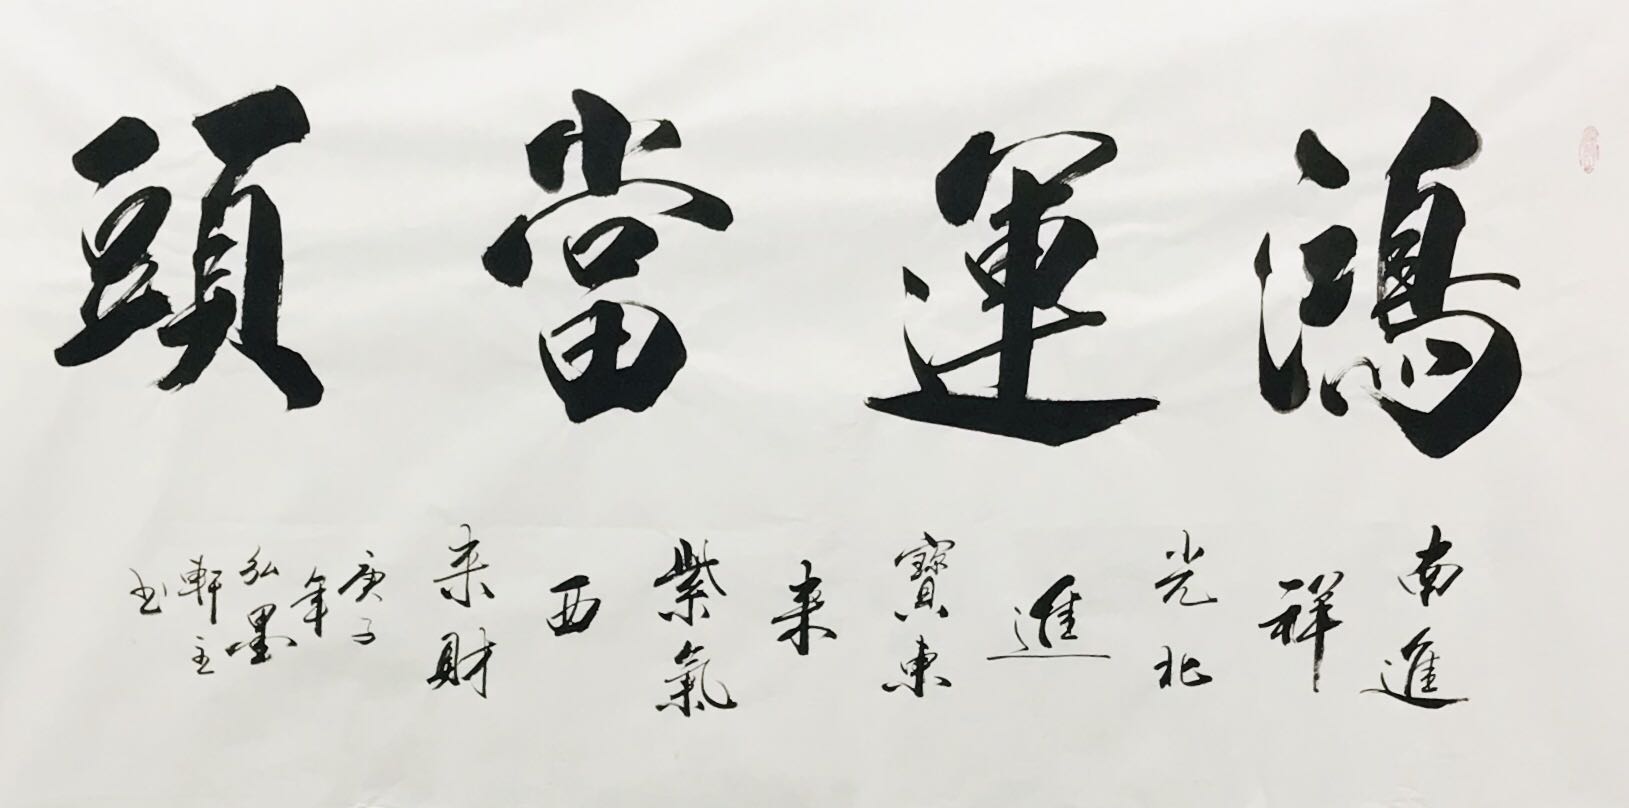 鴻運當頭
南進祥光北進寶東来紫氣西来財
庚子年弘墨軒主书